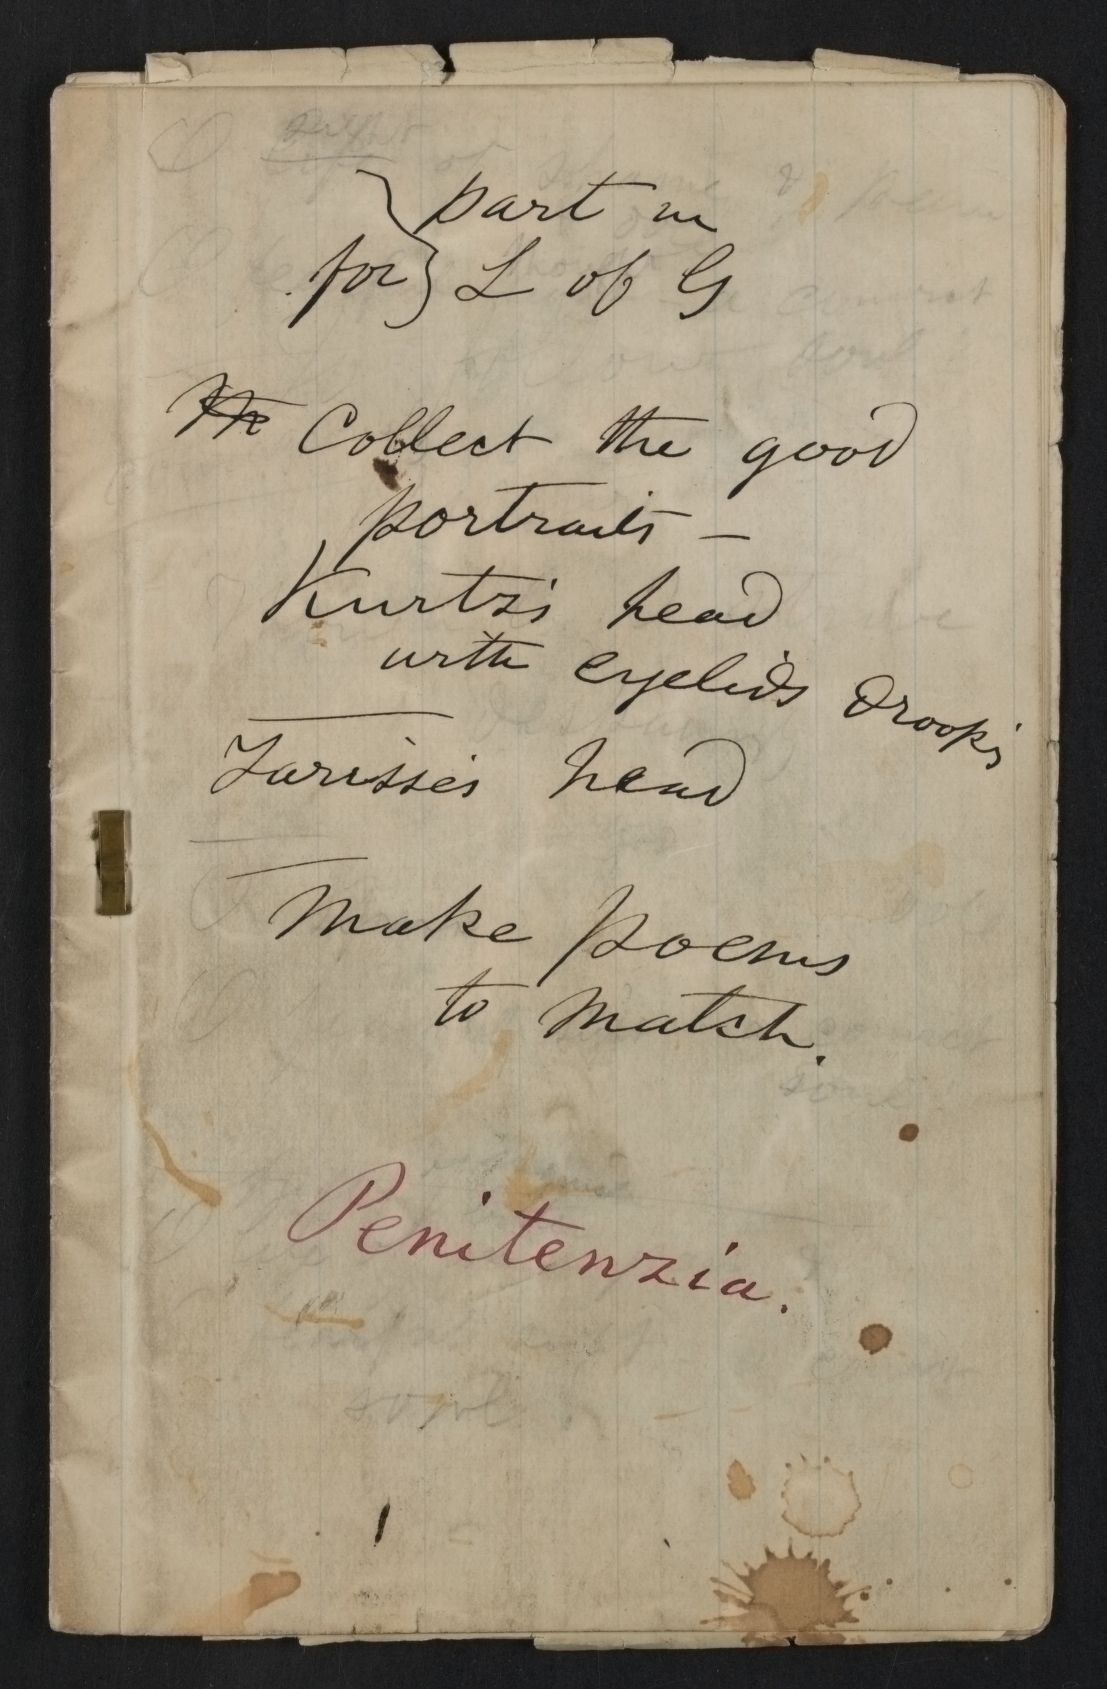 part in
for } L of G
Collect the good
portraits —
Kurtz's head
with eyelids droop'g
head
Make poems
to match.
Penitenzia.